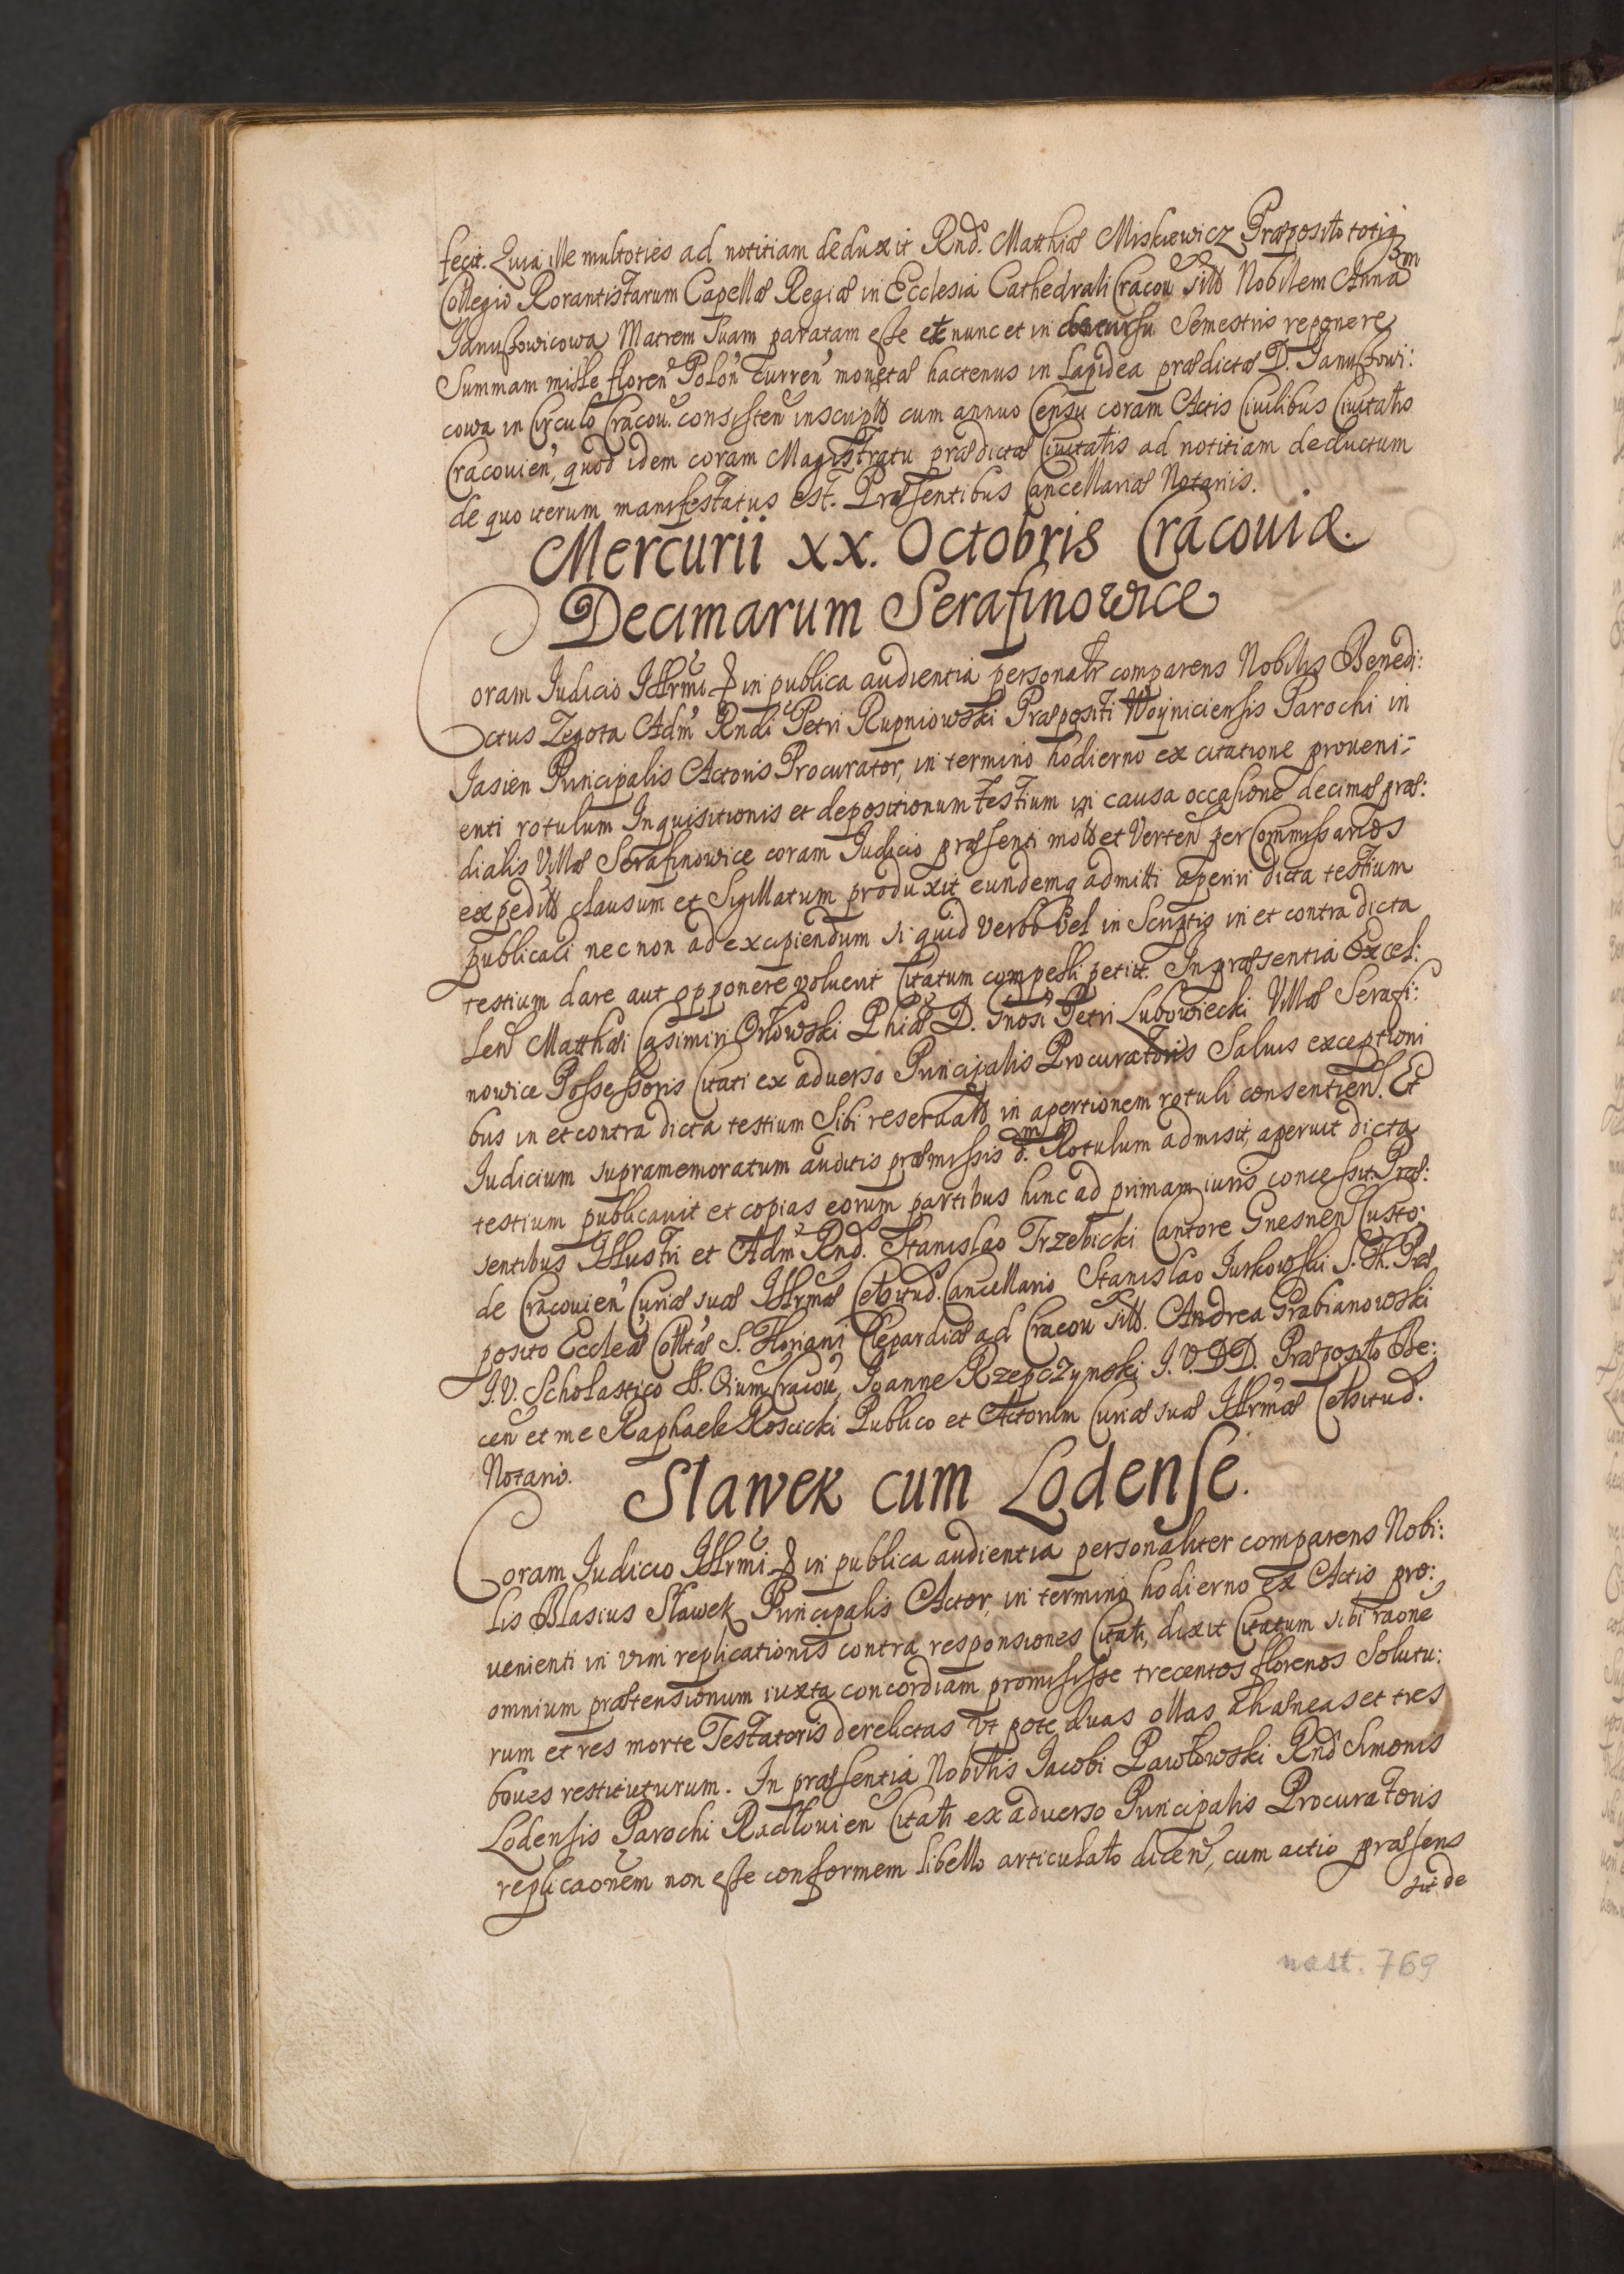 fecit. Quia ille multoties ad notitiam deduxit Rnd. Matthiæ Miskiewicz Præposito totiq
Collegio Rorantistarum Capellæ Regiæ in Ecclesia Cathedrali Cracou Nobilem Annā
Januszowicowa Matrem suam paratam esse et nunc et in decursu Semestris reponere
Summam mille floren Polon curren monetæ hactenus in Lapidea prædictæ D. Januszowi:
cowa in Circulo Cracou. consisten inscript cum annuo Censu coram Actis Ciuilibus Ciuitatis
Cracouien, quod idem coram Magistratu prædictæ Ciuitatis ad notitiam deductum
de quo iterum manifestatus est. Præsentibus Cancellariæ Notariis.
Mercurii XX. Octobris Cracouiæ.
Decimarum Serafinowice
Coram Judicio Illrmi in publica audientia personalr comparens Nobilis Benedi:
ctus Zegota Adm Rndi Petri Rupniowski Præpositi Woyniciensis Parochi in
Jasien Principalis Actoris Procurator, in termino hodierno ex citatione proueni:
enti rotulum Inquisitionis et depositionum testium in causa occasione decimæ præ:
dialis Villæ Serafinowice coram Judicio præsenti mot et Verten per Commissarios
expedit clausum et Sigillatum produxit eundemq admitti aperiri dicta testium
publicaci nec non ad excipiendum si quid verbo vel in Scriptis in et contra dicta
testium dare aut opponere voluerit Citatum compelli petiit. In præsentia Excel:
len Matthæi Casimiri Orłowski Phiæ D. Gnosi Petri Lubowiecki Villæ Serafi:
nowice Possessoris Citati ex aduerso Principalis Procuratoris Saluis exceptioni
bus in et contra dicta testium sibi reseruat in apertionem rotuli consentien. Et
Judicium supramemoratum auditis præmissis d. Rotulum admisit, aperuit dicta
testium publicauit et copias eorum partibus hinc ad primam iuris concessit. Præ:
sentibus Illustri et Adm Rnd. Stanislao Trzebicki Cantore Gnesnen Custo:
de Cracouien Curiæ suæ Illrmæ Celsitud. Cancellario Stanislao Jurkowski S. Th. Præ
posito Eccleæ Colltæ S. Floriani Clepardiæ ad Cracou sitt. Andrea Grabianowski
J. V. Scholastico Oium Cracou, Joanne Rzepczynski J. V. DD. Præposito Be:
cen et me Raphaele Koscicki Publico et Actorum Curiæ suæ Illrmæ Celsitud.
Notario.
Sławek cum Lodense.
Coram Judicio Illrmi in publica audientia personaliter comparens Nobi:
lis Blasius Sławek Principalis Actor, in termino hodierno ex Actis pro:
uenienti in vim replicationis contra responsiones Citati, dixit Citatum sibi raone
omnium prætensionum iuxta concordiam promisisse trecentos florenos Solutu:
rum et res morte Testatoris derelictas vt pote duas ollas ahæneas et tres
boues restituturum. In præsentia Nobilis Jacobi Pawłowski Rnd Simonis
Lodensis Parochi Radłouien Citati ex aduerso Principalis Procuratoris
replicaonem non esse conformem libello articulato dicen, cum actio præsens
sit de
nast. 769